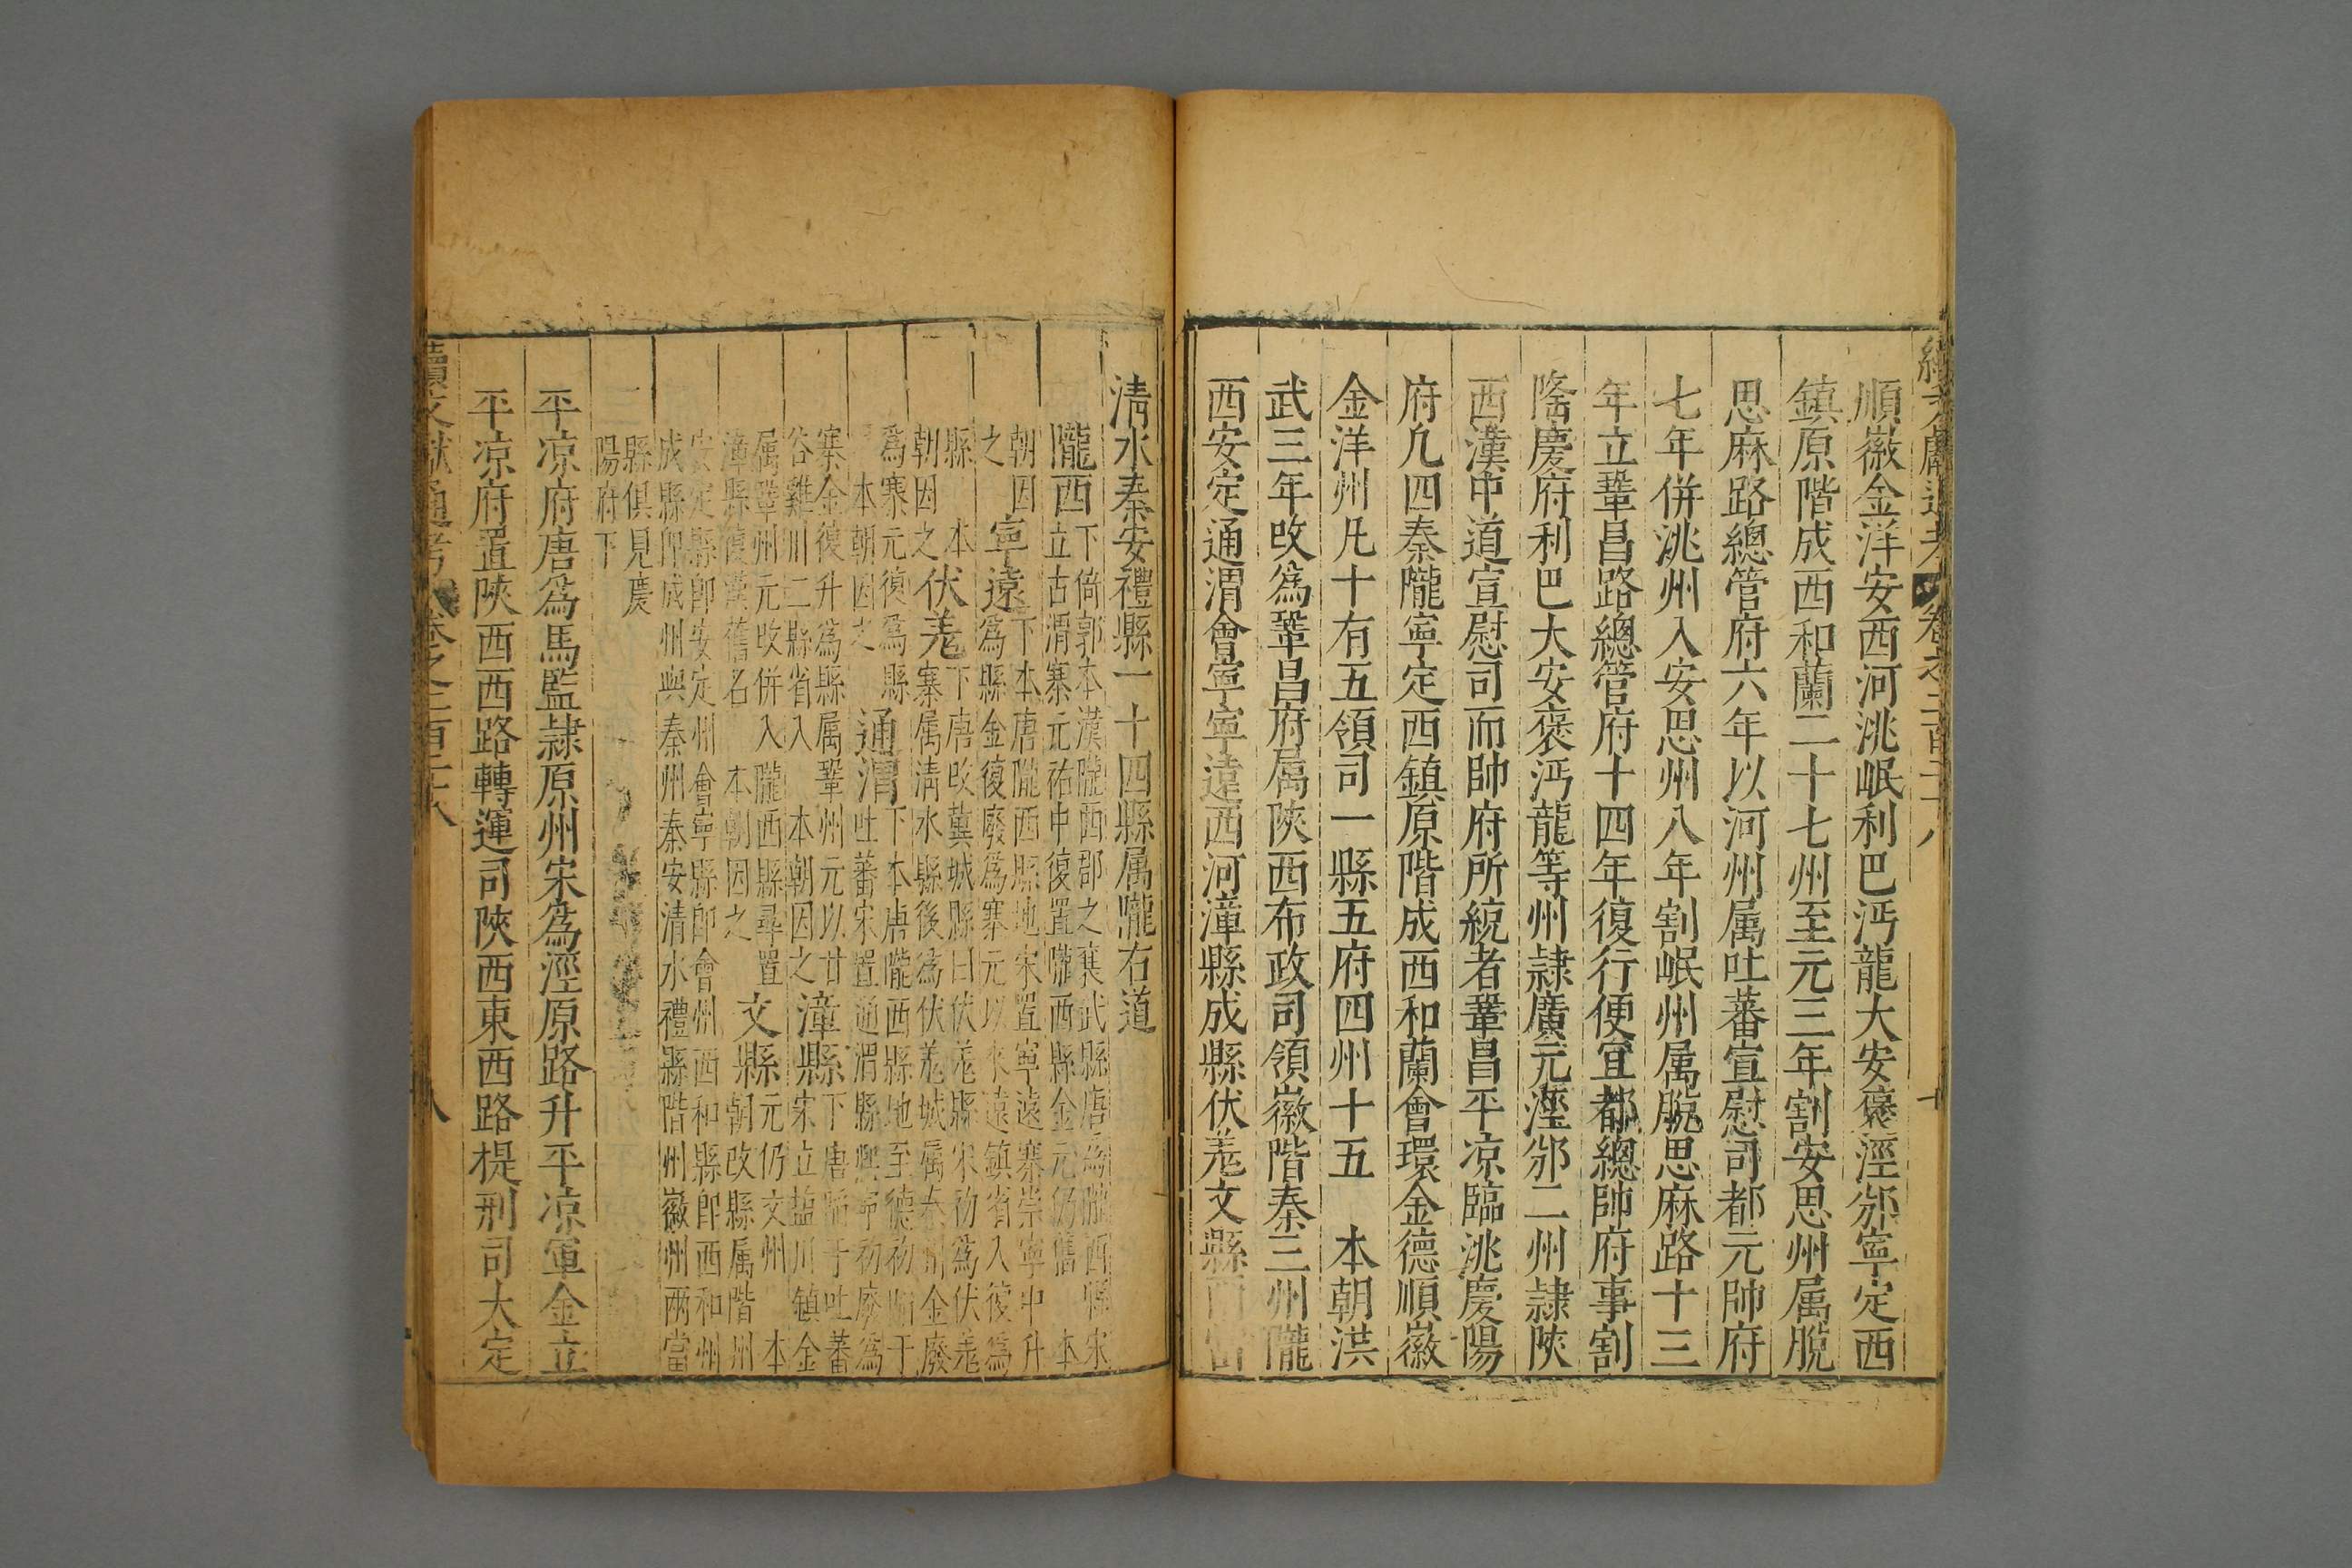 順徽金洋安西河洮岷利巴沔龍大安褒涇邠寧定西
鎮原階成西和蘭二十七州至元三年割安思州属脫
思麻路總管府六年以河州属吐蕃宣慰司都元帥府
七年併洮州入安思州八年割岷州属脫思麻路十三
年立鞏昌路總管府十四年復行便宜都總帥府事割
隆慶府利巴大安褒沔龍等州隷廣元涇邠二州隷陜
西漢中道宣慰司而帥府所統者鞏昌平凉臨洮慶陽
府凡四秦隴寧定西鎮原階成西和蘭會環金德順徽
金洋州凡十有五領司一縣五府四州十五　本朝洪
武三年改為鞏昌府属陜西布政司領徽階秦三州隴
西安定通渭會寧寧遠西河漳縣成縣伏羗文縣兩當
清水秦安禮縣一十四縣属隴右道
隴西
下倚郭本漢隴西郡之襄武縣唐為隴西縣宋
立古渭寨元祐中復置隴西縣金元仍舊　本
朝因
之
寧遠
下本唐隴西縣地宋置寧遠寨崇寧中升
為縣金復廢為寨元以來遠鎮省入復為
縣　本
朝因之
伏羗
下唐改冀城縣曰伏羗縣宋初為伏羗
寨属清水縣後為伏羗城属秦州金廢
為寨元復為縣
本朝因之
通渭
下本唐隴西縣地至德初陷于
吐蕃宋置通渭縣熙寧初廢為
寨金復升為縣属鞏州元以甘
谷雞川二縣省入　本朝因之
漳縣
下唐陷于吐蕃
宋立鹽川鎮金
属鞏州元改併入隴西縣尋置
漳縣復漢舊名　本朝因之
文縣
元仍文州　本
朝改縣属階州
安定縣即安定州會寧縣即會州西和縣即西和州
成縣即成州與秦州秦安清水禮縣階州徽州兩當
三
縣俱見慶
陽府下
平凉府唐為馬監隷原州宋為涇原路升平凉軍金立
平凉府置陜西西路轉運司陜西東西路提刑司大定
續文獻通考　卷之二百二十八　八